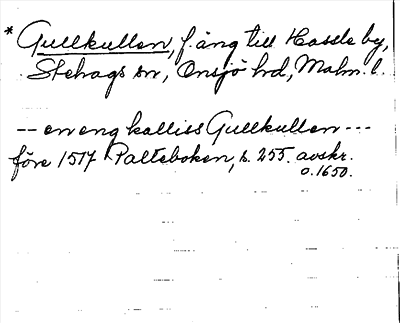 * Gullkullen, f. äng till Hassle by,
Stehags sn, Onsjö hd, Malm. l.
-- en eng kalliss Gullkullen ---
före 1517 Palteboken, s. 255. avskr.
o. 1650.